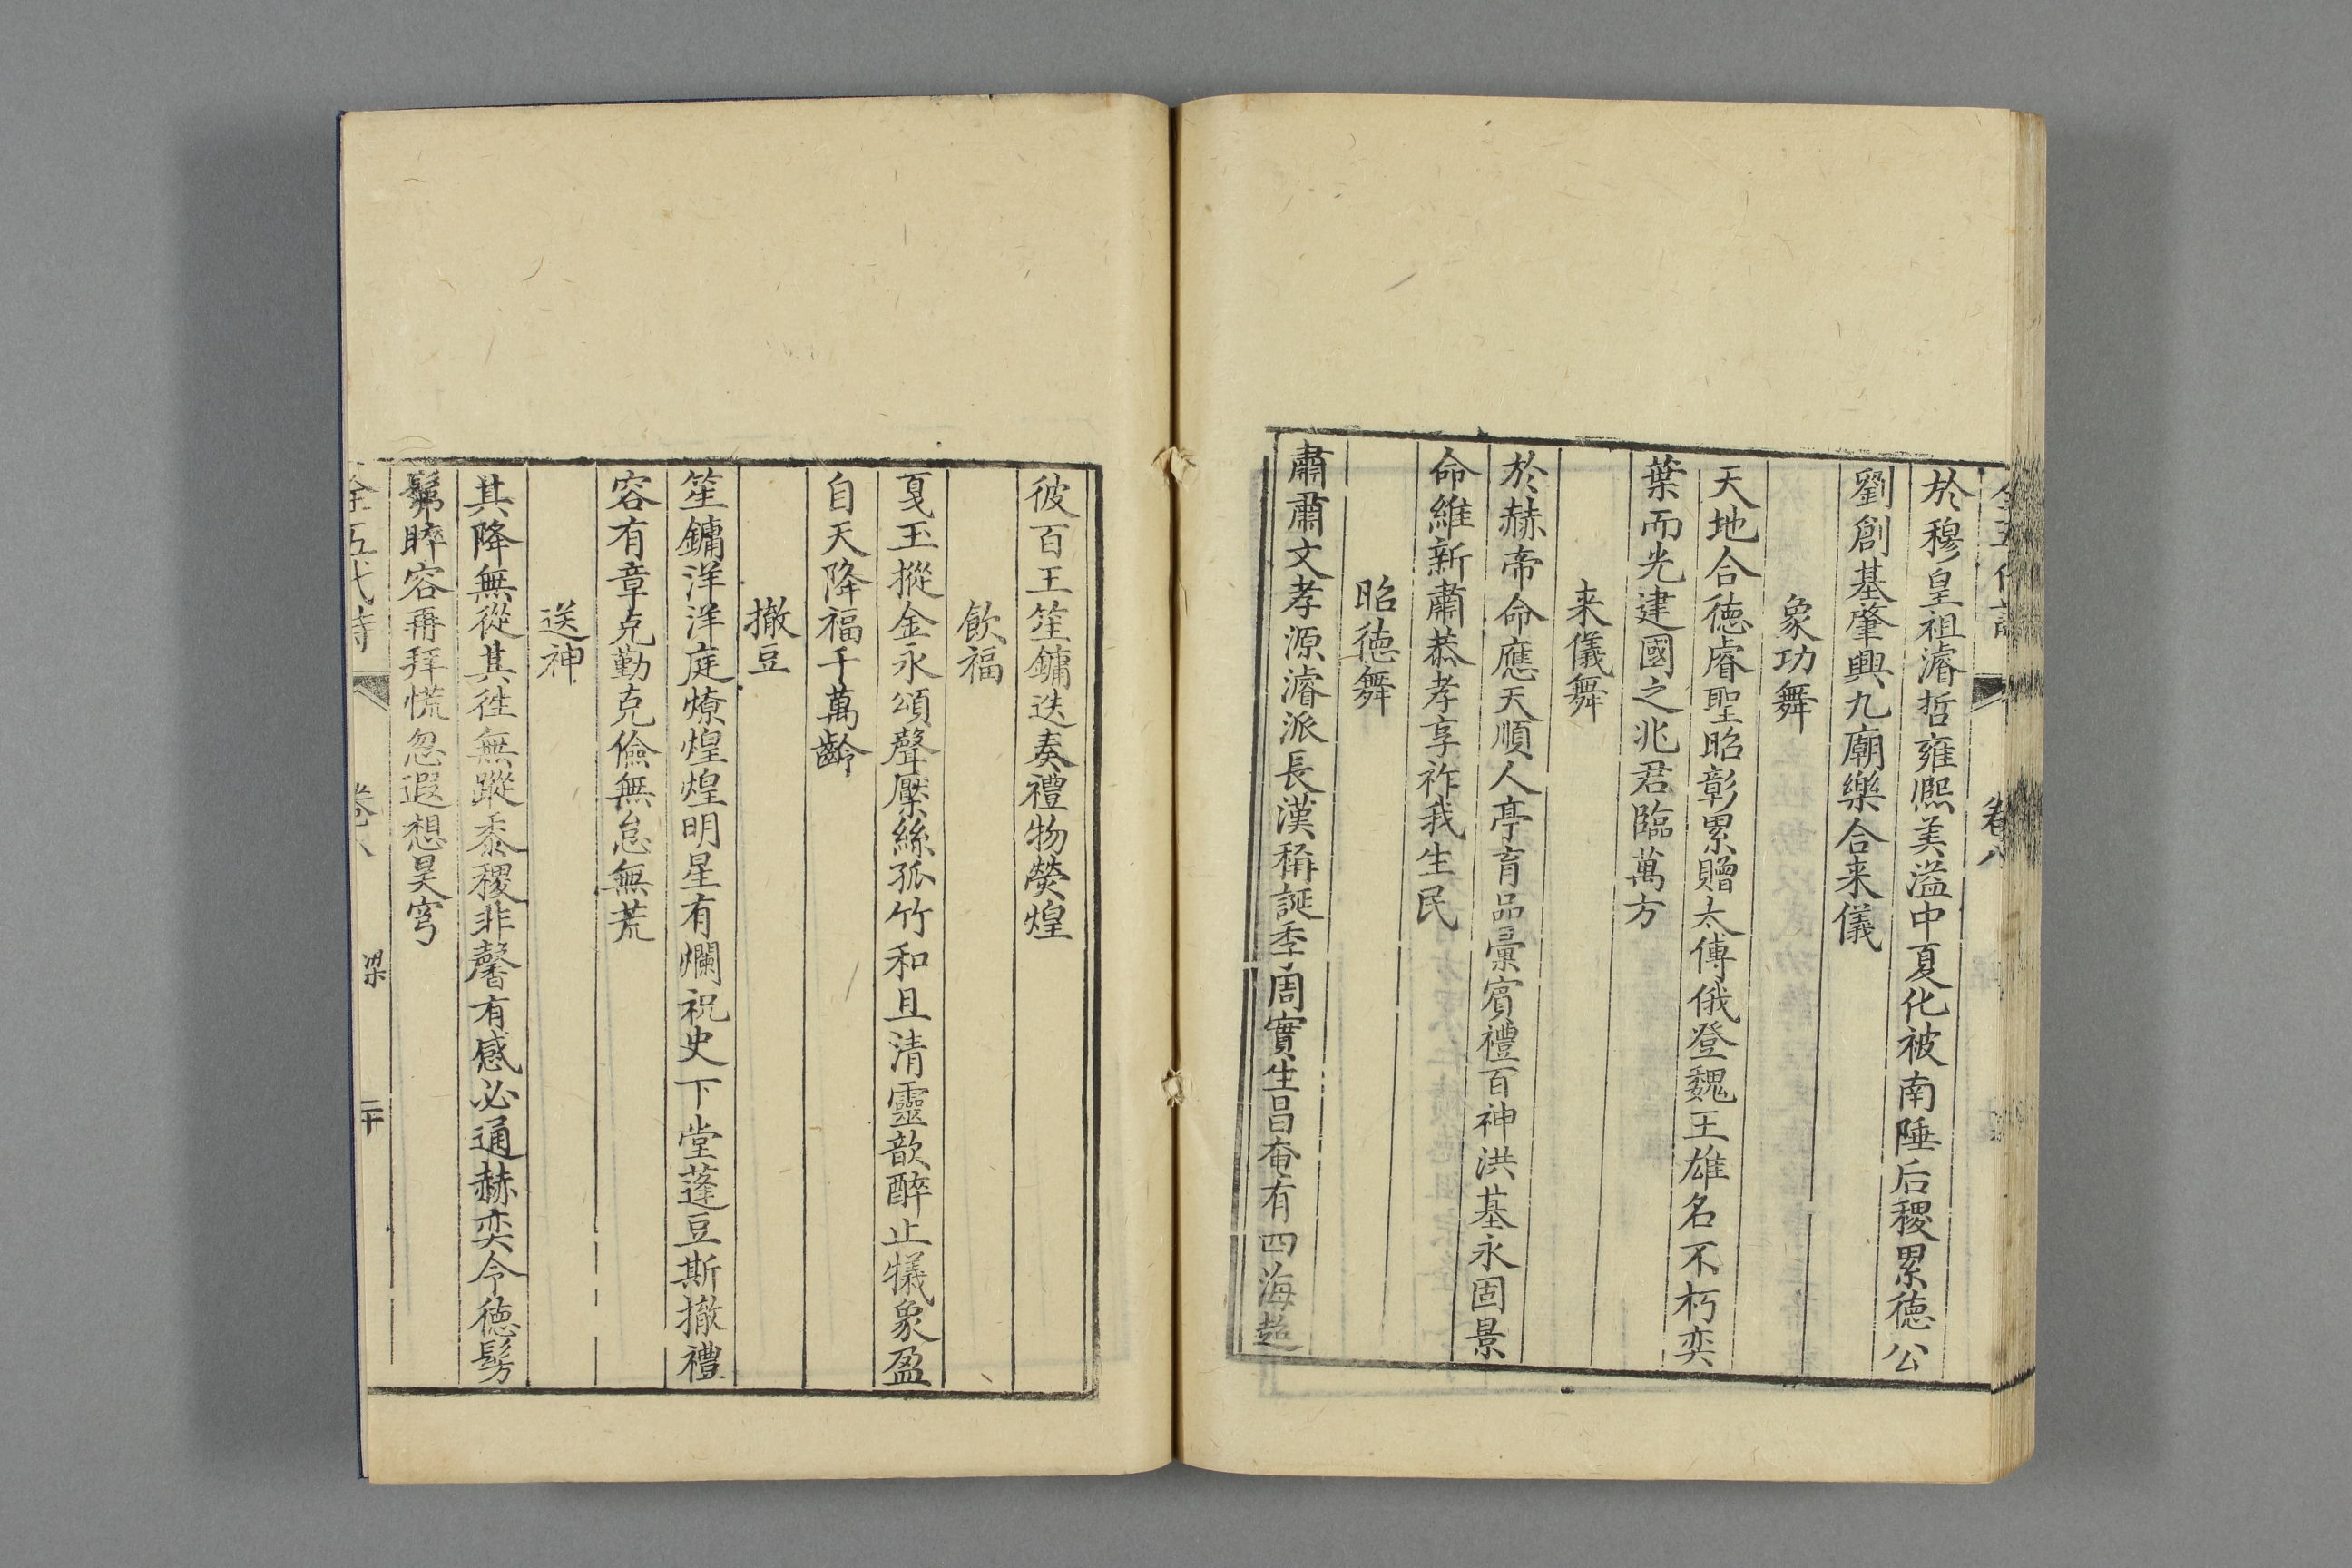 全五代詩 卷八
於穆皇祖濬哲雍熙美溢中夏化被南陲后稷累徳公
劉創基肇興九廟樂合来儀
象功舞
天地合徳睿聖昭彰累贈太傅俄登魏王雄名不朽奕
葉而光建國之兆君臨萬方
来儀舞
於赫帝命應天順人亭育品彙賓禮百神洪基永固景
命維新肅恭孝享祚我生民
昭徳舞
肅肅文孝源濬派長漢稱誕季周實生昌奄有四海超
彼百王笙鏞迭奏禮物熒煌
飲福
戛玉摐金永頌聲檿絲孤竹和且清靈歆醉止犠象盈
自天降福千萬齡
撤豆
笙鏞洋洋庭燎煌煌明星有爛祝史下堂蓬豆斯撤禮
容有章克勤克儉無怠無荒
送神
其降無從其徃無蹤黍稷非馨有感必通赫奕令徳髣
髴睟容再拜慌忽遐想昊穹
全五代詩 卷八 梁 二十